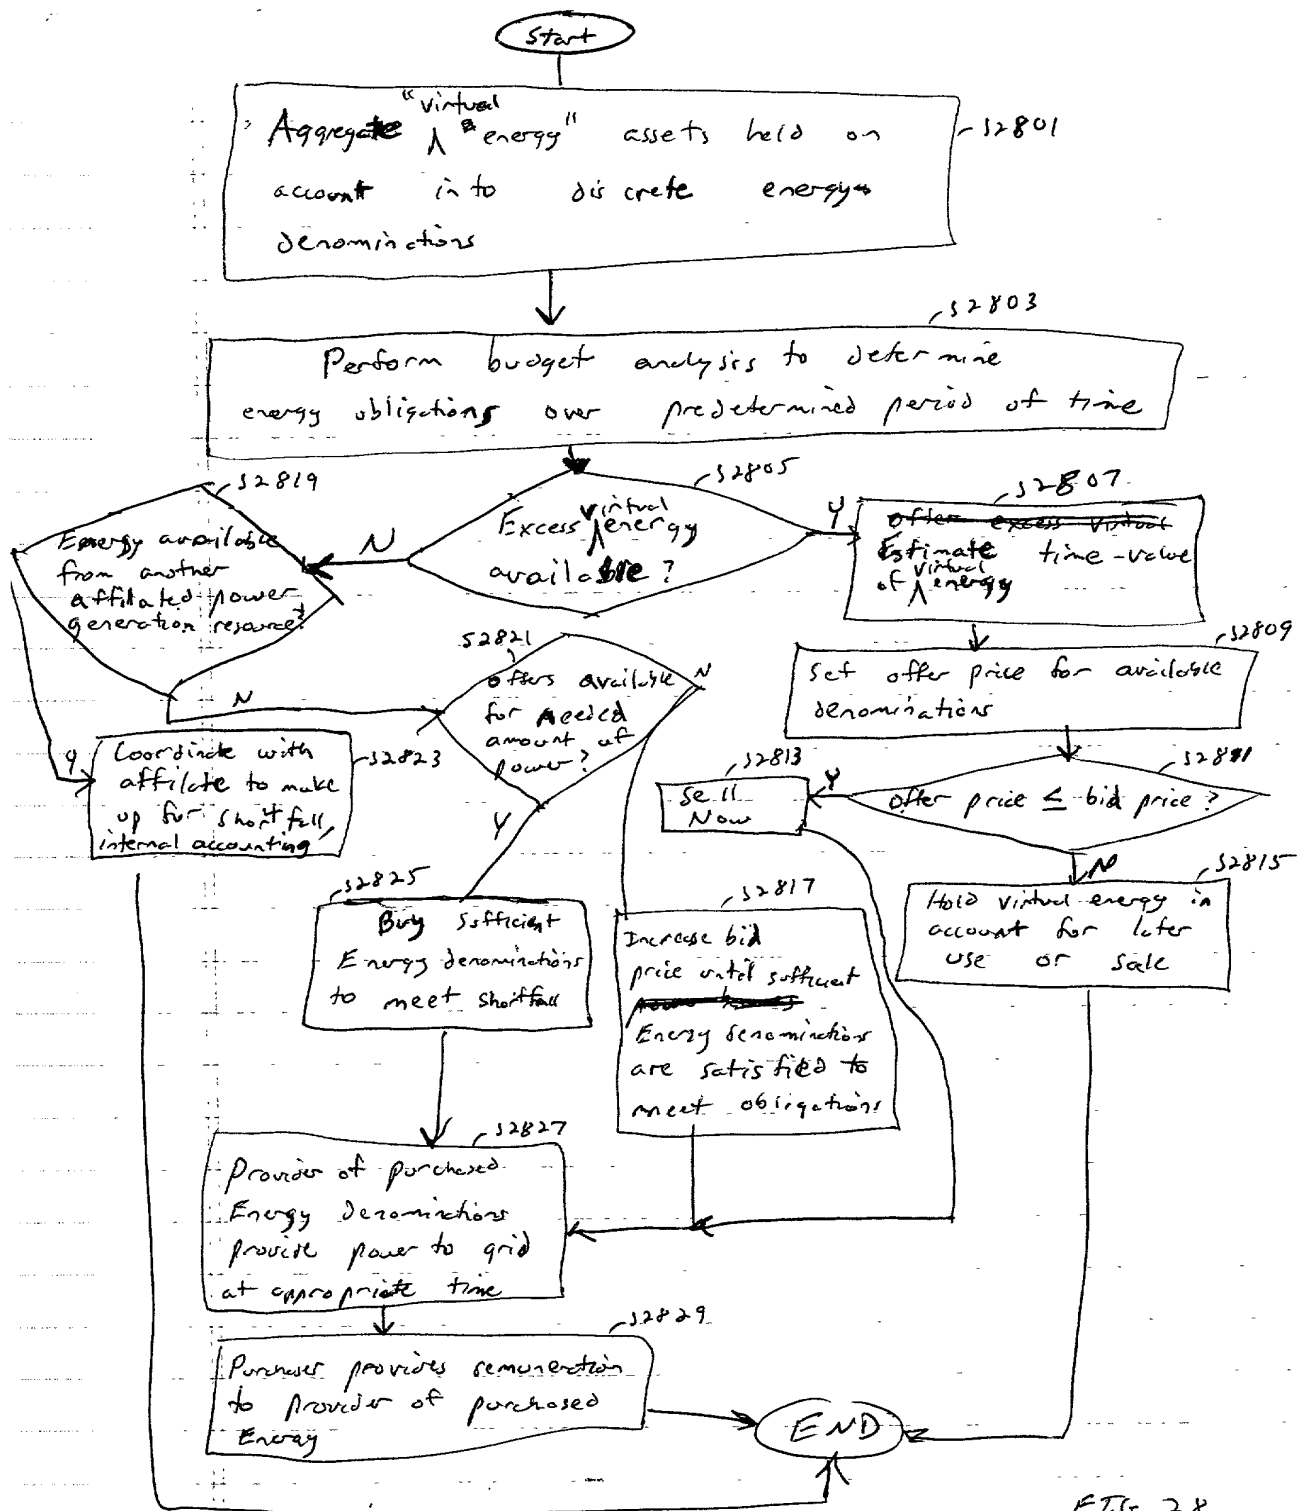 Start
"virtual
Aggregate energy" assets held on
account into discrete energy
denominctions
S2801
S2803
Perform budget analysis to determine
energy obligations over predetermined period of time
S2805
Excess virtual energy
available?
N
Y
S2819
Energy available
from another
affiliated power
generation resource?
N
Y
S2807
offer excess virtual
Estimate time-value
of virtual energy
S2809
Set offer price for available
denominations
S2811
offer price ≤ bid price?
Y
N
S2813
Sell
Now
S2815
Hold virtual energy in
account for later
use or sale
S2821
offers available
for needed
amount of
power?
N
Y
S2823
Coordinate with
affiliate to make
up for shortfall,
internal accounting
S2825
Buy sufficient
Energy denominctions
to meet shortfall
S2817
Increase bid
price until sufficient
Energy denominctions
are satisfied to
meet obligations
S2827
Provider of purchased
Energy Denominctions
provide power to grid
at appropriate time
S2829
Purchaser provides remuneration
to provider of purchased
Energy
END
FIG 28